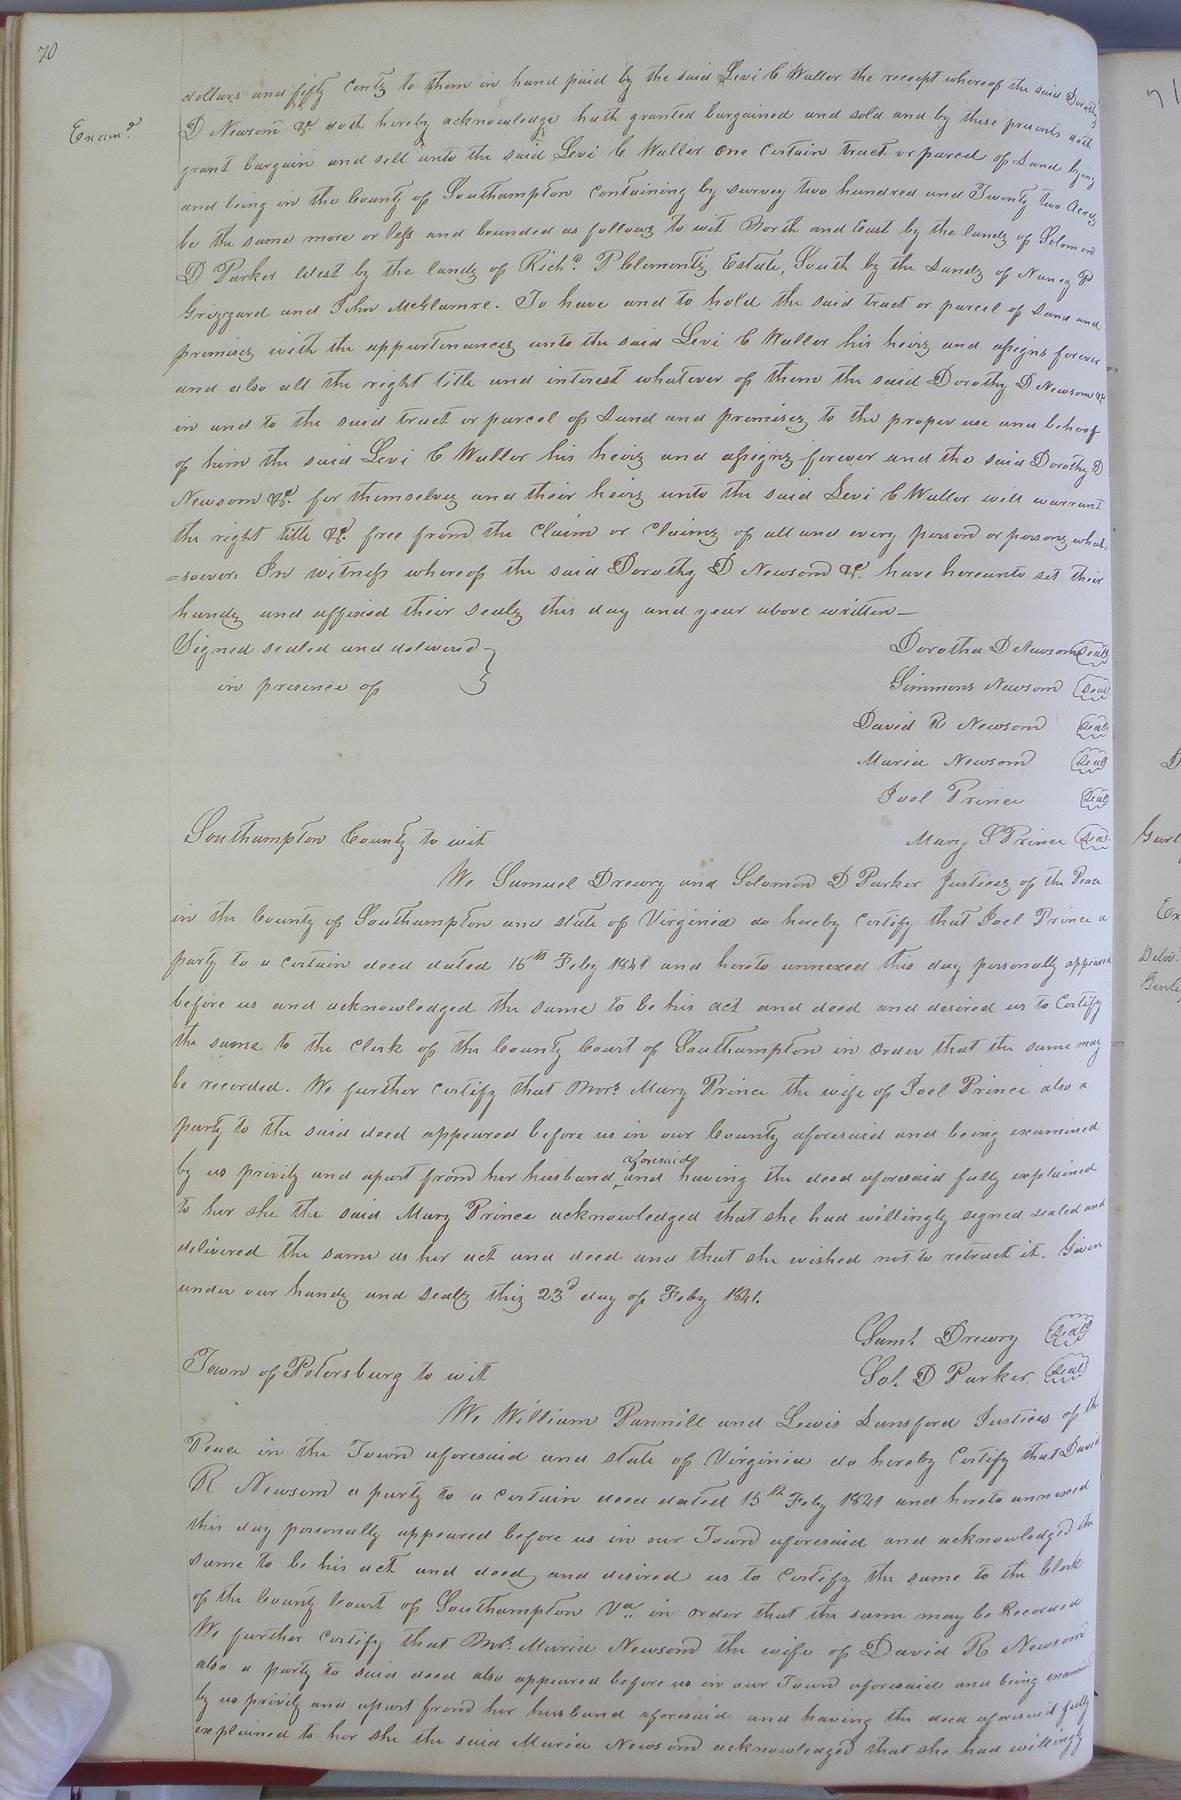 70
dollars and fifty cents to them in hand paid by the said Levi C Waller the receipt whereof the said Dorothy
Exam.d
D Newsom &c. doth hereby acknowledge hath granted bargained and sold and by these presents doth
grant bargain and sell unto the said Levi C Waller one certain tract or parcel of Land lying
and being in the County of Southampton containing by survey two hundred and Twenty two Acres
be the same more or less and bounded as follows to wit North and East by the lands of Solomon
D Parker West by the lands of Rich.d P Clements Estate, South by the Lands of Nancy P
Grizzard and John McGlamre. To have and to hold the said tract or parcel of Land and
premises with the appurtenances unto the said Levi C Waller his heirs and assigns forever
and also all the right title and interest whatever of them the said Dorothy D Newsom &c
in and to the said tract or parcel of Land and premises to the proper use and behoof
of him the said Levi C Waller his heirs and assigns forever and the said Dorothy D
Newsom &c. for themselves and their heirs unto the said Levi C Waller will warrant
the right title &c. free from the claim or claims of all and every person or persons what=
=soever. In witness whereof the said Dorothy D Newsom &c. have hereunto set their
hands and affixed their seals this day and year above written—
Signed sealed and delivered }
in presence of
Dorotha D Newsom Seal
Simmons Newsom Seal
David R Newsom Seal
Maria Newsom Seal
Joel Prince Seal
Southampton County to wit
Mary S Prince Seal
We Samuel Drewry and Solomon D Parker Justices of the Peace
in the County of Southampton and state of Virginia do hereby certify that Joel Prince a
party to a certain deed dated 15th Feby 1841 and hereto annexed this day personally appeared
before us and acknowledged the same to be his act and deed and desired us to Certify
the same to the Clerk of the County Court of Southampton in order that the same may
be recorded. We further certify that Mrs Mary Prince the wife of Joel Prince also a
party to the said deed appeared before us in our County aforesaid and being examined
by us privily and apart from her husband aforesaid and having the deed aforesaid fully explained
to her she the said Mary Prince acknowledged that she had willingly signed sealed and
delivered the same as her act and deed and that she wished not to retract it. Given
under our hands and seals this 23d day of Feby 1841.
Saml. Drewry Seal
Town of Petersburg to wit
Sol. D Parker. Seal
We William Pannill and Lewis Lunsford Justices of the
Peace in the Town aforesaid and state of Virginia do hereby Certify that David
R Newsom a party to a certain deed dated 15th Feby 1841 and hereto annexed
this day personally appeared before us in our Town aforesaid and acknowledged the
same to be his act and deed and desired us to certify the same to the Clerk
of the County Court of Southampton Va in order that the same may be Recorded
We further certify that Mrs. Maria Newsom the wife of David R Newsom
also a party to said deed also appeared before us in our Town aforesaid and being examined
by us privily and apart from her husband aforesaid and having the deed aforesaid fully
explained to her she the said Maria Newsom acknowledged that she had willingly